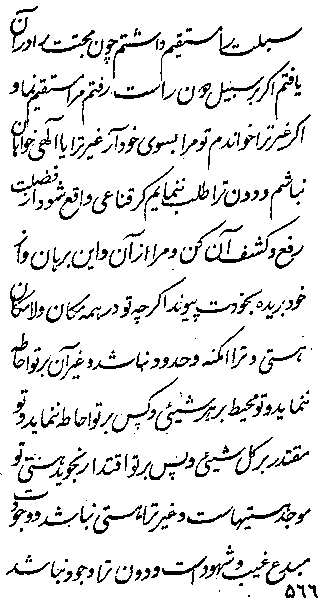 سبیلت را مستقیم داشتم چون محبتت را در آن
یافتم اگر بر سبیل چون راست رفتم مرا مستقیم نما و
اگر غیر ترا خواندم تو مرا بسوی خود آر غیر ترا یا الهی خواهان
نباشم و دون ترا طلب ننمایم گر قناعی واقع شود از فضلت
رفع و کشف آن کن و مرا از آن و این برهان و از
خود بریده بخودت پیوند اگر چه تو در همه مکان و لا مکان
هستی و ترا امکنه و حدود نباشد و غیر آن بر تو احاطه
ننماید و تو محیط بر هر شیئی و کس بر تو احاطه ننماید و تو
مقتدر بر کل شیئی و پس بر تو اقتدار نجوید هستی تو
موجد هستیهاست و غیر ترا هستی نباشد و وجودت
مبدع غیب و شهود است و دون ترا وجود نباشد
۵۶۶